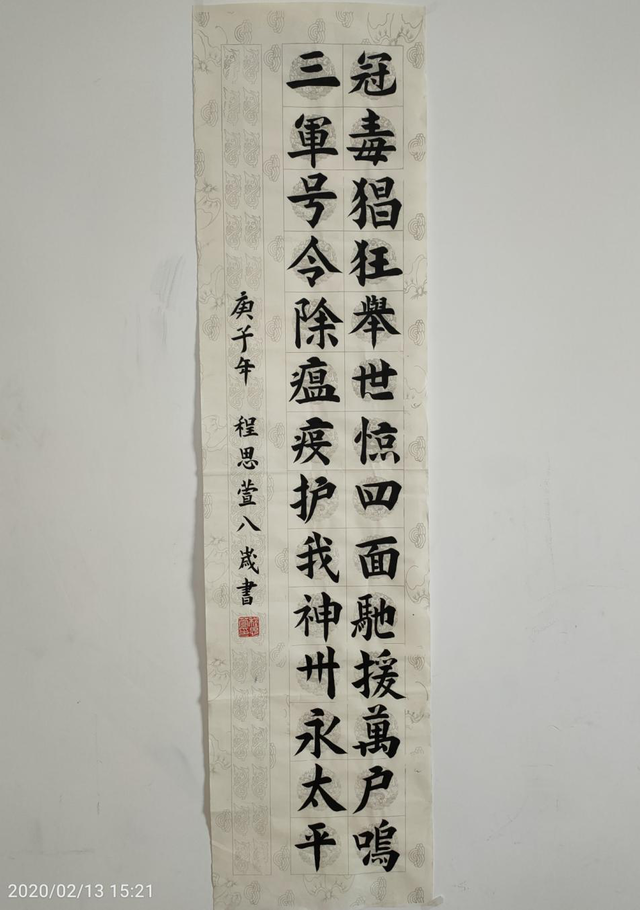 冠毒猖狂舉世惊四面馳援萬户嗚
三軍号令除瘟疫护我神卅永太平
庚子年 程思萱八歲書
2020/02/13 15:21